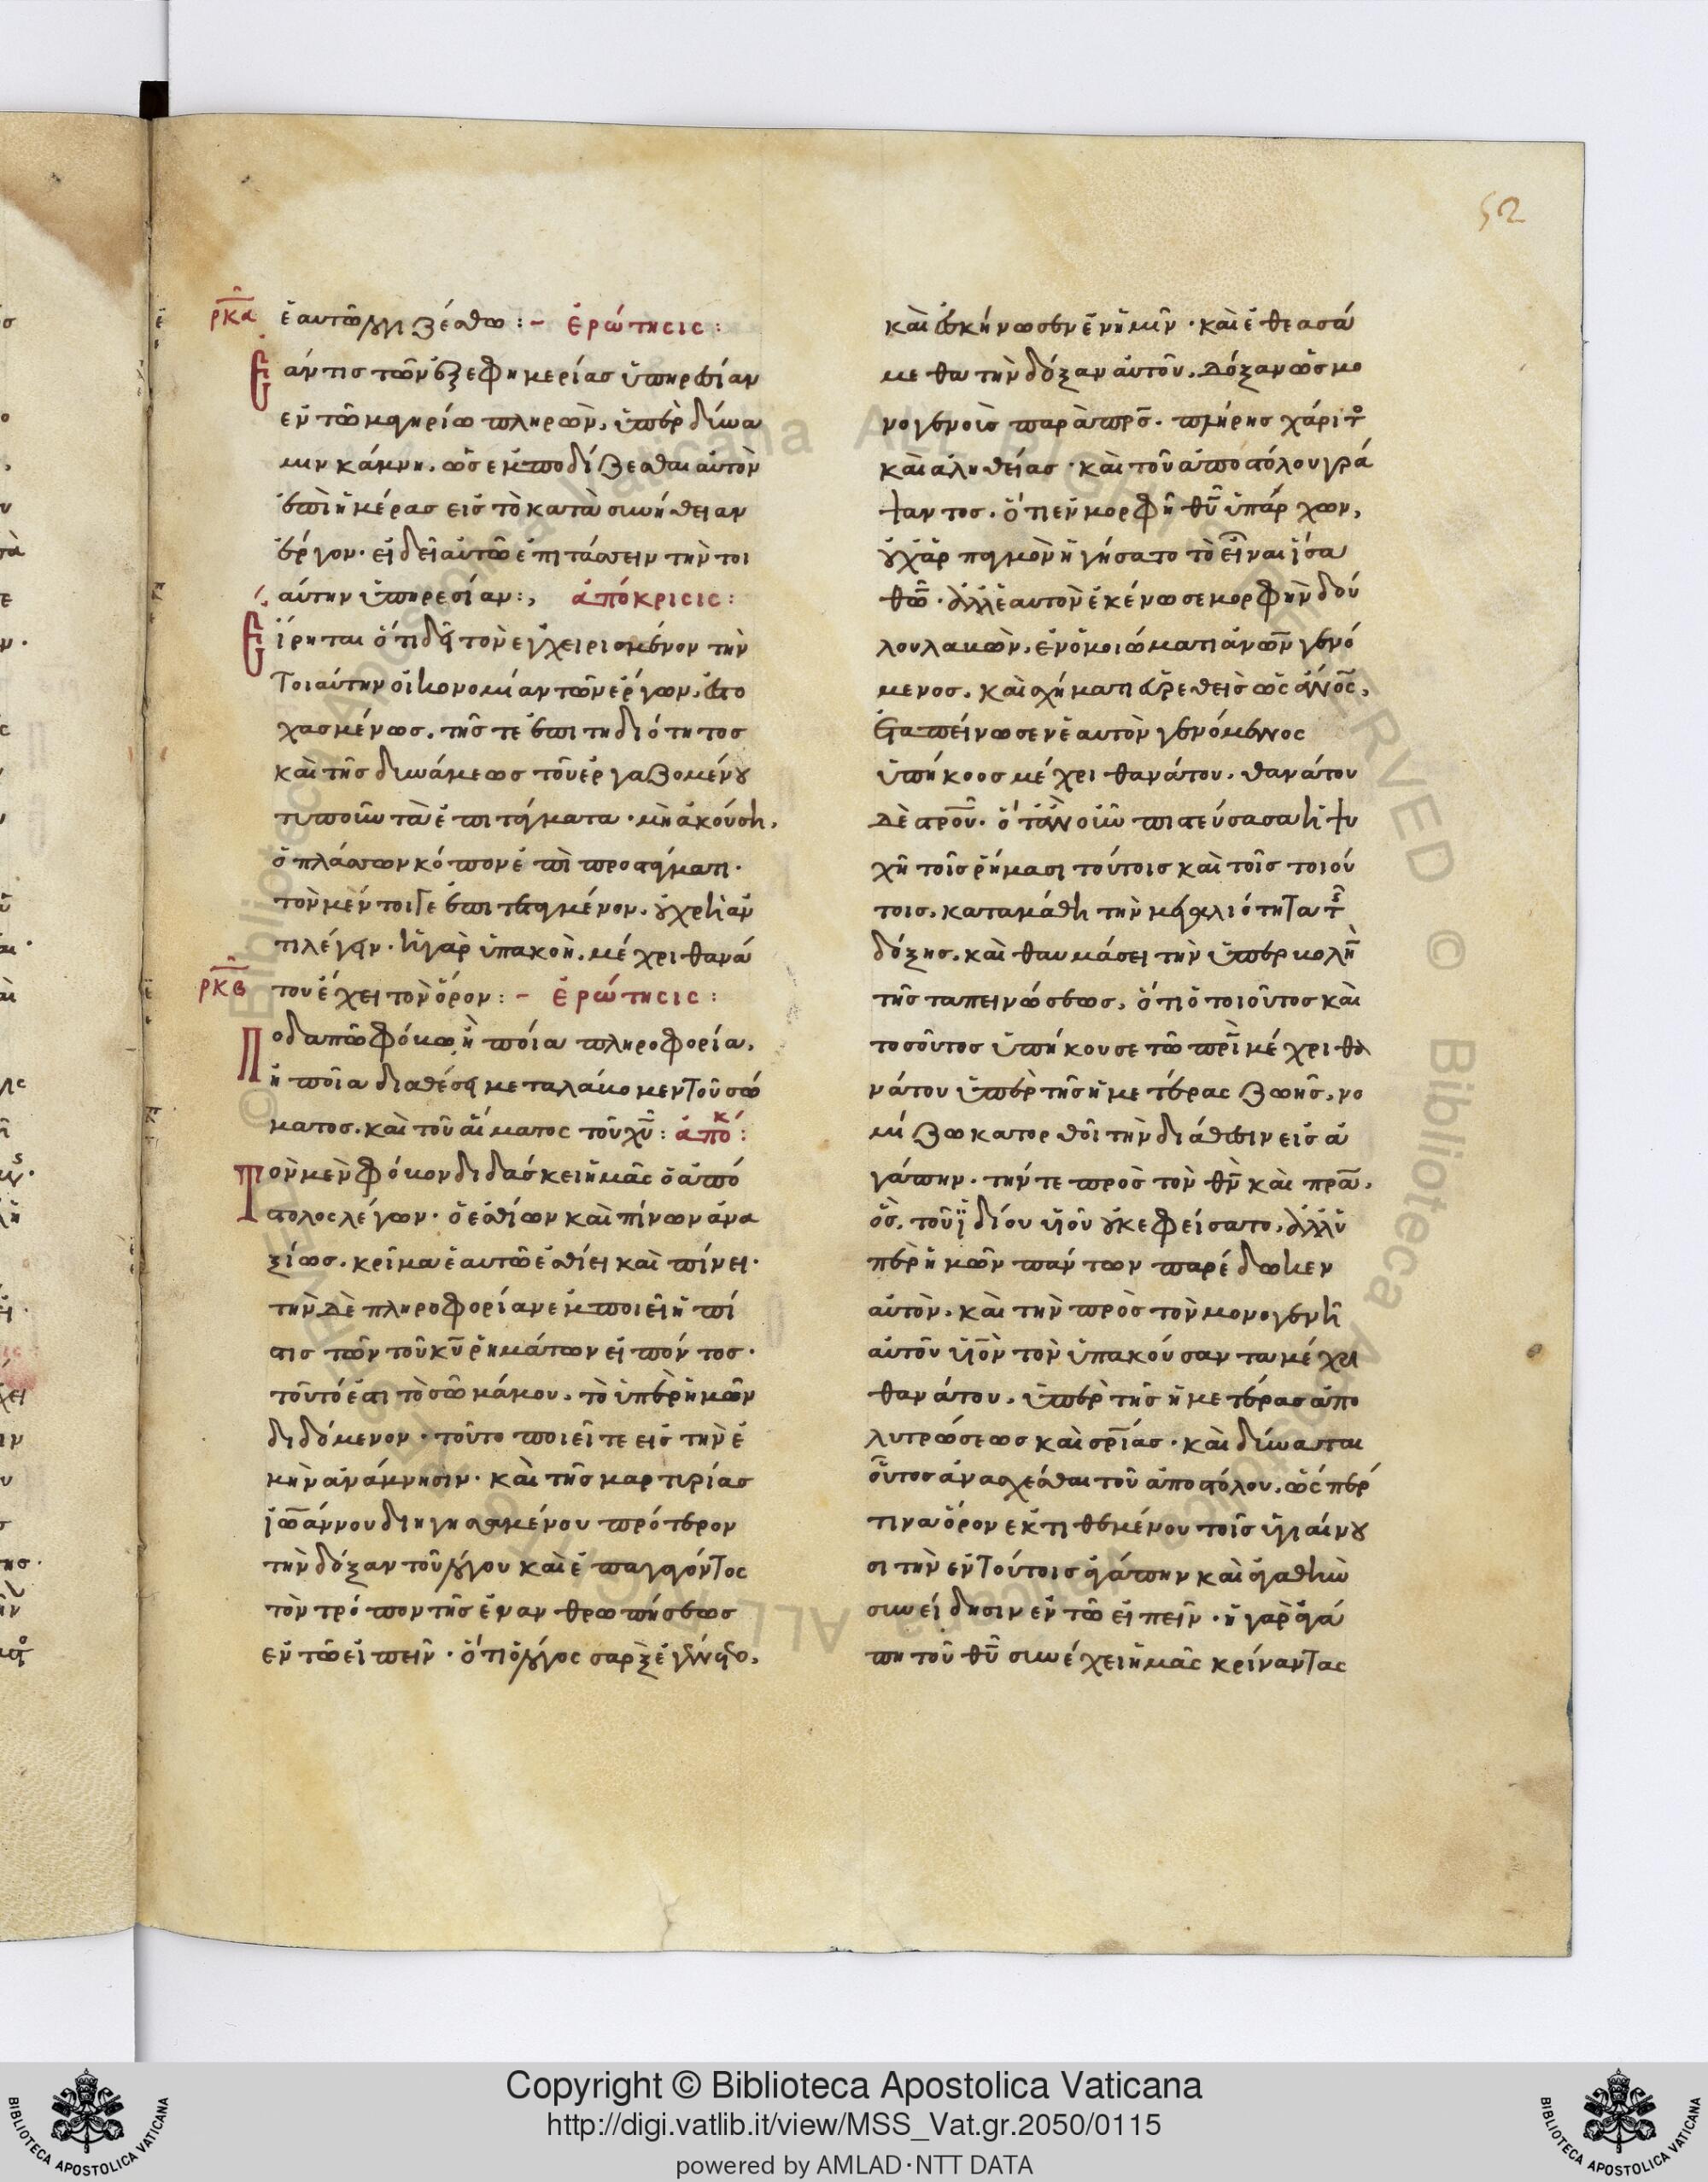 52
ρκα ἑαυτῶ λογιζέσθω :– ἐρώτησις :
Ἐάν τις τῶν ἐξ ἐφημερίας ὑπηρεσίαν
ἐν τῶ μαγειρίω πληρῶν, ὑπὲρ δύνα
μιν κάμνη. ὥς ἐμποδίζεσθαι αὐτὸν
ἐπὶ ἡμέρας εἰς τὸ κατὰ συνήθειαν
ἔργον. εἰ δεῖ αὐτῶ ἐπιτάσσειν τὴν τοι
αύτην ὑπηρεσίαν :, ἀπόκρισις :
Εἴρηται ὅτι δεῖ τὸν ἐγχειρισμένον τὴν
τοιαύτην οἰκονομίαν τῶν ἔργων, ἐστο
χασμένως. τῆς τε ἐπιτηδιότητος
καὶ τῆς δυνάμεως τοῦ ἐργαζομένου
τι ποιεῖν τὰ ἐπιτάγματα. μὴ ἀκούση,
ὁ πλάσσων κόπον ἐπὶ προστάγματι.
τὸν μέντοι γε ἐπιτεταγμένον. οὐ χρὴ ἀν
τιλέγειν. ἡ γὰρ ὑπακοὴ, μέχρι θανά
ρκβ του ἔχει τὸν ὅρον :– ἐρώτησις :
Ποδαπῶ φόβω, ἢ ποία πληροφορία,
ἢ ποῖα διαθέσει μεταλάβομεν τοῦ σώ
ματος. καὶ τοῦ αἵματος τοῦ χυ : ἀπόκ :
Τὸν μὲν φόβον διδάσκει ἡμᾶς ὁ ἀπό
στολος λέγων. ὁ ἐσθίων καὶ πίνων ἀνα
ξίως. κρῖμα ἑαυτῶ ἐσθίει καὶ πίνει.
τὴν δὲ πληροφορίαν ἐμποιεῖ ἡ πί
στις τῶν τοῦ κυ ῥημάτων εἰπόντος.
τοῦτό ἐστι τὸ σῶμά μου. τὸ ὑπὲρ ἡμῶν
διδόμενον. τοῦτο ποιεῖτε εἰς τὴν ἐ
μὴν ἀνάμνησιν. καὶ τῆς μαρτυρίας
ἰωάννου διηγησαμένου πρότερον
τὴν δόξαν τοῦ λόγου καὶ ἐπαγαγόντος
τὸν τρόπον τῆς ἐνανθρωπήσεως
ἐν τῶ εἰπεῖν. ὅτι ὁ λόγος σὰρξ ἐγένετο,
καὶ ἐσκήνωσεν ἐν ἡμῖν. καὶ ἐθεασά
μεθα τὴν δόξαν αὐτοῦ. δόξαν ὡς μο
νογενοὺς παρὰ πρς. πλήρης χάριτος
καὶ ἀληθείας. καὶ τοῦ ἀποστόλου γρά
ψαντος. ὅτι ἐν μορφῆ θυ ὑπάρχων,
οὐχ ἁρπαγμὸν ἡγήσατο τὸ εἶναι ἴσα
θω. ἀλλ' ἑαυτὸν ἐκένωσε μορφὴν δού
λου λαβὼν, ἐν ὁμοιώματι ἀνων γενό
μενος, καὶ σχήματι εὑρεθεὶς ὡς ἀνος,
ἐταπείνωσεν ἑαυτὸν γενόμενος
ὑπήκοος μέχρι θανάτου, θανάτου
δὲ στρου. ὅταν οὖν πιστεύσασα ἡ ψυ
χὴ τοῖς ῥήμασι τούτοις καὶ τοῖς τοιού
τοις. καταμάθη τὴν μεγαλιότητα τῆς
δόξης. καὶ θαυμάσει τὴν ὑπερβολὴν
τῆς ταπεινώσεως, ὅτι ὁ τοιοῦτος καὶ
τοσοῦτος ὑπήκουσε τῶ πρι μέχρι θα
νάτου ὑπὲρ τῆς ἡμετέρας ζωῆς. νο
μίζω κατορθοῖ τὴν διάθεσιν εἰς ἀ
γάπην. τήν τε πρὸς τὸν θν καὶ πρα.
ὃς, τοῦ ἰδίου υἱοῦ οὐκ ἐφείσατο. ἀλλ' ὑ
πὲρ ἡμῶν πάντων παρέδωκεν
αὐτὸν. καὶ τὴν πρὸς τὸν μονογενῆ
αὐτοῦ υἱὸν τὸν ὑπακούσαντα μέχρι
θανάτου, ὑπὲρ τῆς ἡμετέρας ἀπο
λυτρώσεως καὶ σριας. καὶ δύναται
οὗτος ἀνασχέσθαι τοῦ ἀποστόλου, ὥσπερ
τινα ὅρον ἐκτιθεμένου τοῖς ὑγιαίνου
σι τὴν ἐν τούτοις ἀγάπην καὶ ἀγαθὴν
συνείδησιν ἐν τῶ εἰπεῖν. ἡ γὰρ ἀγά
πη τοῦ θυ συνέχει ἡμᾶς κρίναντας
Copyright © Biblioteca Apostolica Vaticana
http://digi.vatlib.it/view/MSS_Vat.gr.2050/0115
powered by AMLAD·NTT DATA
BIBLIOTECA APOSTOLICA VATICANA
BIBLIOTECA APOSTOLICA VATICANA